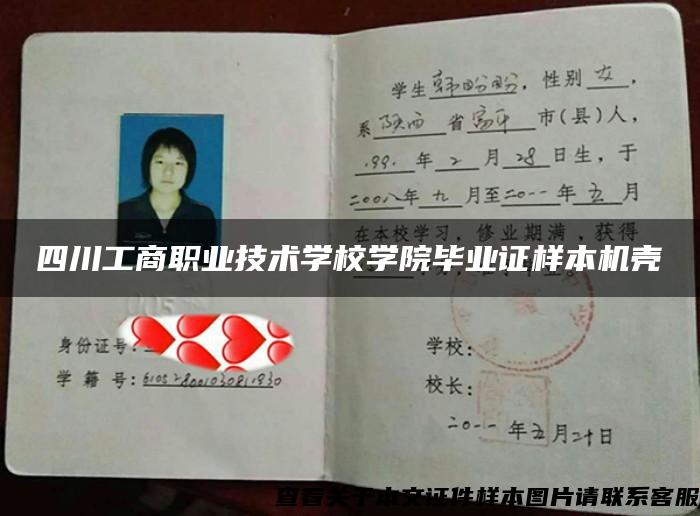 学生韩盼盼，性别女，
系陕西省富平市(县)人，
.99.年2月28日生，于
二00八年九月至二0一一年五月
在本校学习，修业期满，获得
四川工商职业技术学校学院毕业证样本机壳
身份证号：
学籍号：
学校：
校长：
二0一一年五月二十日
查看关于本文证件样本图片请联系客服